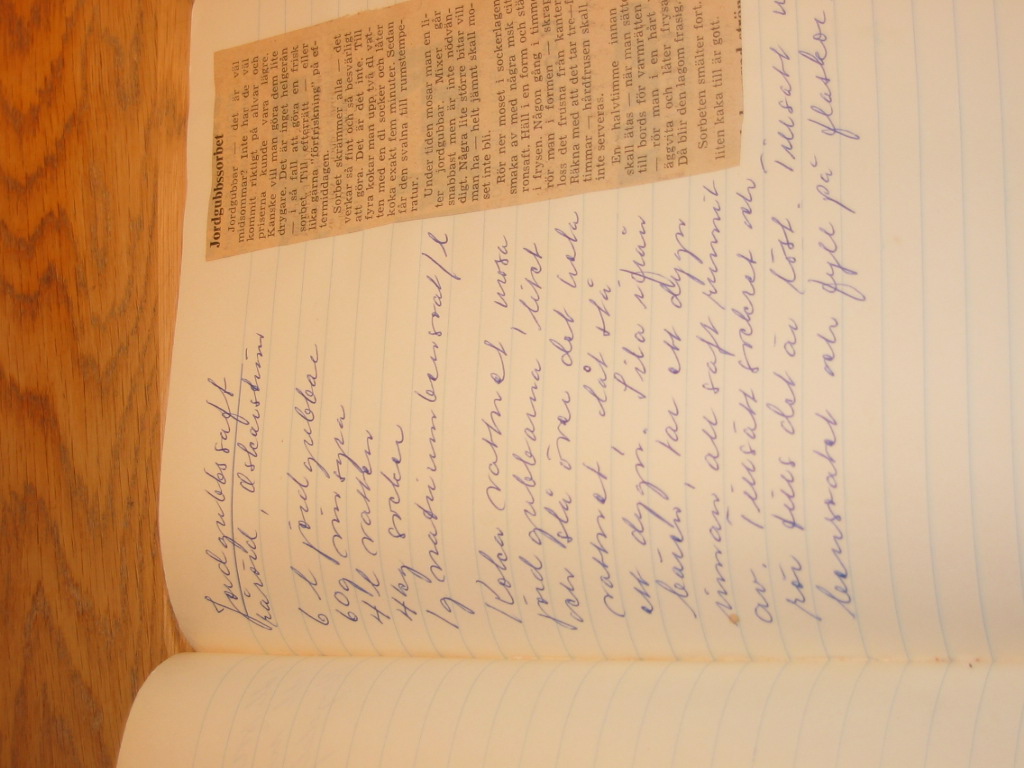 Jordgubbssaft
rårörd, Oskarström
6 l jordgubbar
60g vinsyra
4 l vatten
4 kg socker
1 g natriumbensoat/l
Koka vattnet, mosa
jordgubbarna litet
och slå över det heta
vattnet låt stå
ett dygn. Sila ifrån
bären, tar ett dygn
innan all saft runnit
av. Tillsätt sockret och
rör tills det är löst. Tillsätt
bensoatet och fyll på flaskor
Jordgubbssorbet
Jordgubbar — det är väl
midsommar? Inte har de väl
kommit riktigt på allvar och
priserna kunde vara lägre.
Kanske vill man göra dem lite
drygare. Det är inget helgerån
— i så fall att göra en frisk
sorbet. Till efterrätt — eller
lika gärna "förfriskning" på ef-
termiddagen.
Sorbet skrämmer alla — det
verkar så fint och så besvärligt
att göra. Det är det inte. Till
fyra kokar man upp två dl vat-
ten med en dl socker och låter
koka exakt fem minuter. Sedan
får den svalna till rumstempe-
ratur.
Under tiden mosar man en li-
ter jordgubbar. Mixer går
snabbast men är inte nödvän-
digt. Några lite större bitar vill
man ha — helt jämnt skall mo-
set inte bli.
Rör ner moset i sockerlagen
smaka av med några msk
ronsaft. Häll i en form och
i frysen. Någon gång i
rör man i formen —
loss det frusna från
Räkna med att det tar tre—
timmar — hårdfrusen skall
inte serveras.
En halvtimme innan
skall ätas — när man
till bords för varmrätten
— rör man i en hårt
äggvita och låter frysa
Då blir den lagom frasig.
Sorbeten smälter fort.
liten kaka till är gott.